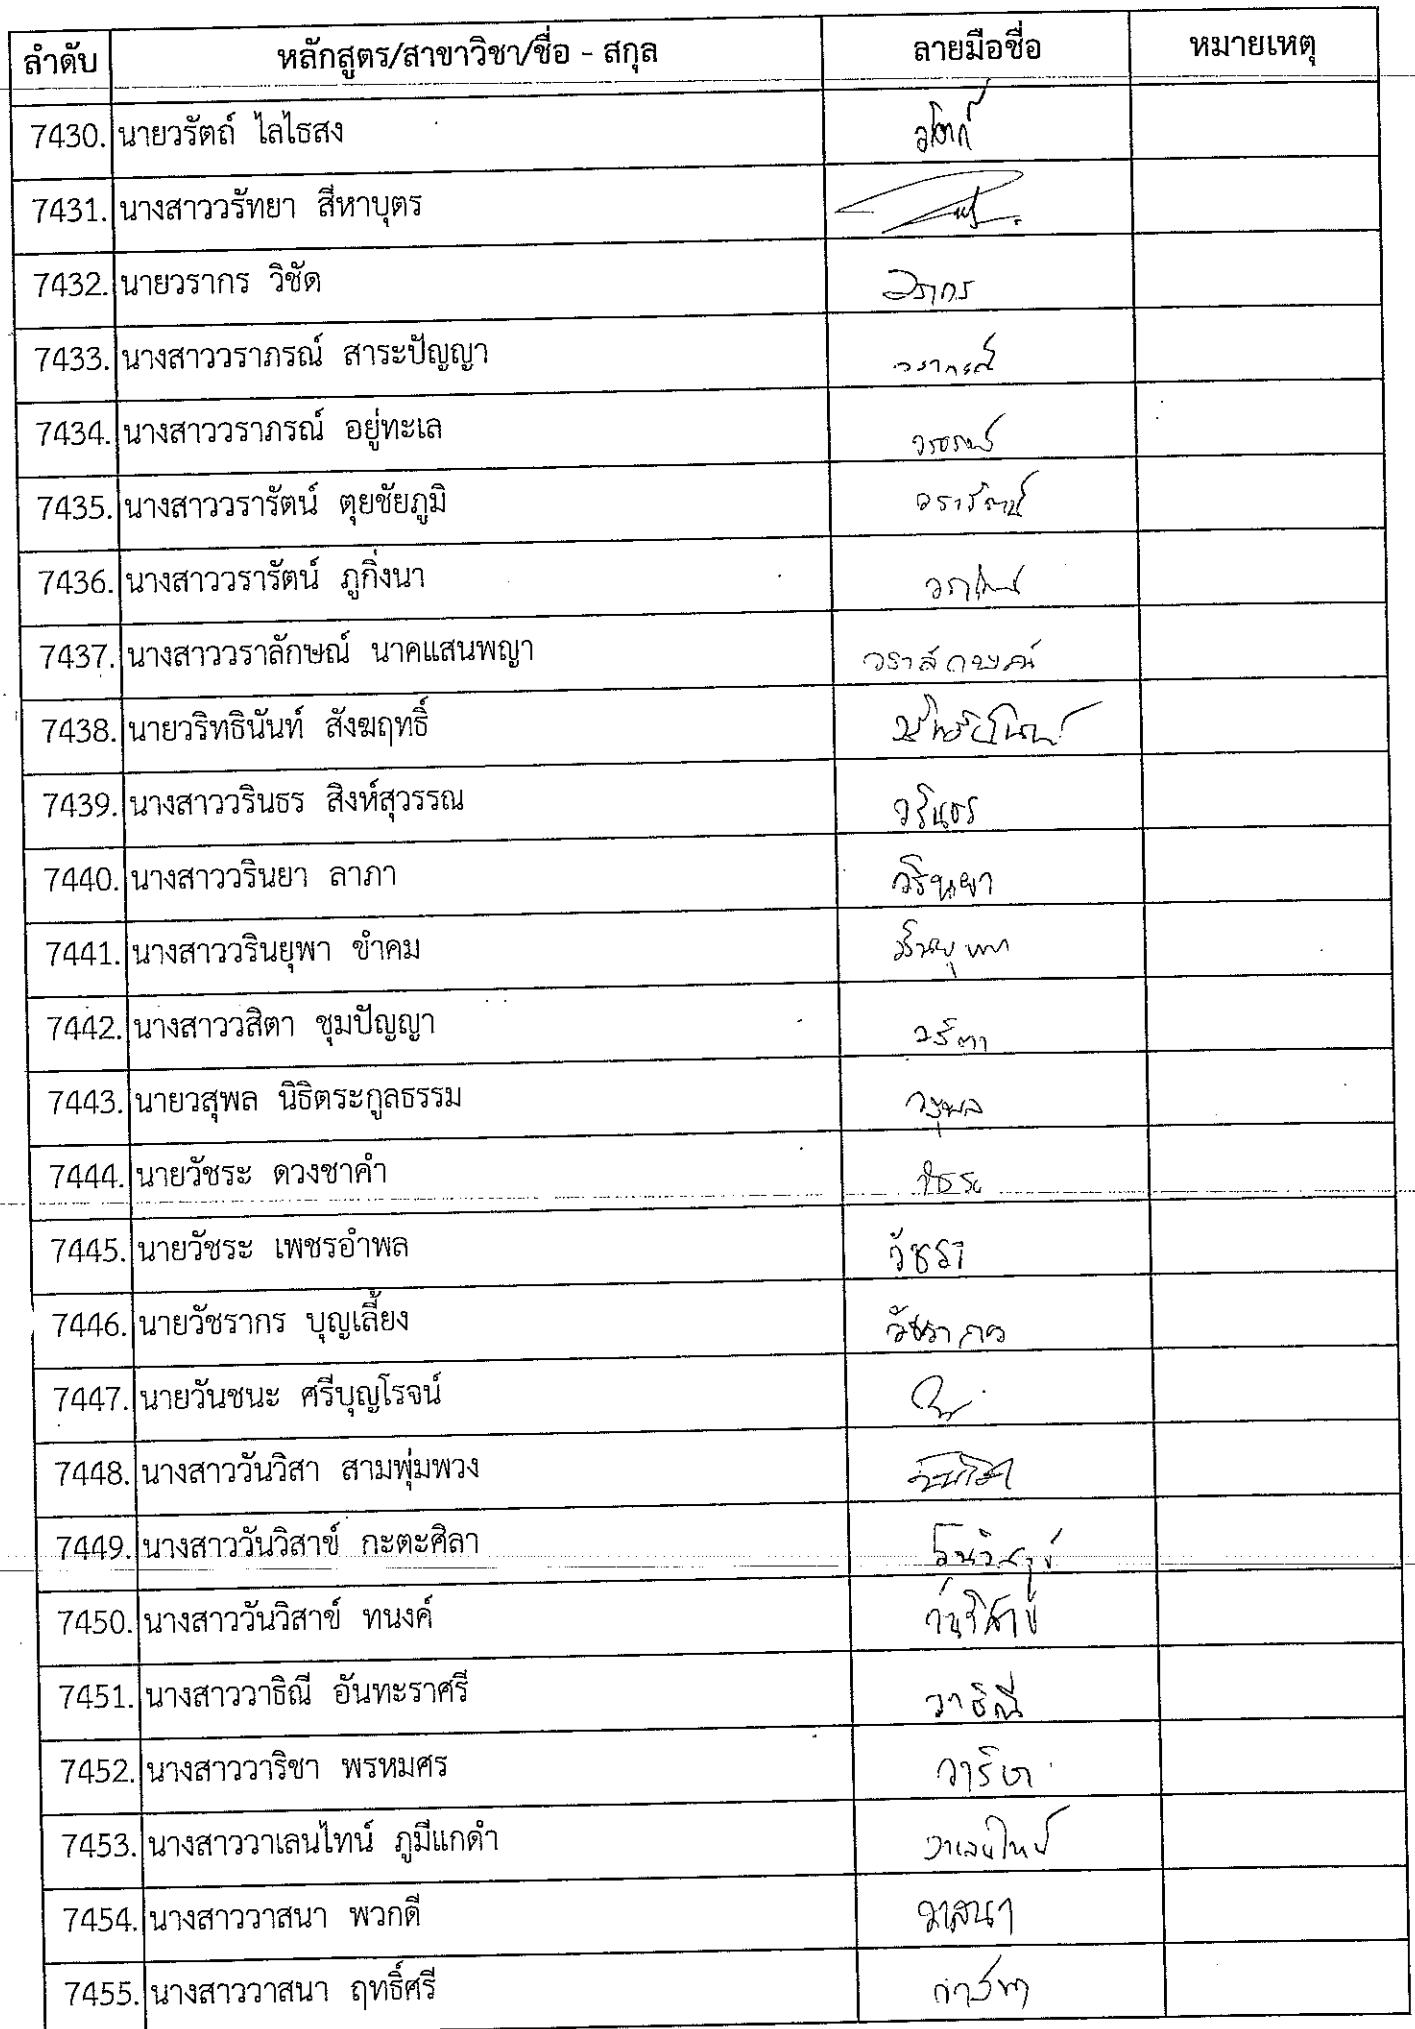 ลำดับ หลักสูตร/สาขาวิชา/ชื่อ - สกุล ลายมือชื่อ หมายเหตุ
7430. นายวรัตถ์ ไลไธสง
7431. นางสาววรัทยา สีหาบุตร
7432. นายวรากร วิชัด วรากร
7433. นางสาววราภรณ์ สาระปัญญา วราภรณ์
7434. นางสาววราภรณ์ อยู่ทะเล
7435. นางสาววรารัตน์ ตุยชัยภูมิ วรารัตน์
7436. นางสาววรารัตน์ ภูกิ่งนา
7437. นางสาววราลักษณ์ นาคแสนพญา วราลักษณ์
7438. นายวริทธินันท์ สังฆฤทธิ์
7439. นางสาววรินธร สิงห์สุวรรณ วรินธร
7440. นางสาววรินยา ลาภา วรินยา
7441. นางสาววรินยุพา ขำคม วรินยุพา
7442. นางสาววสิตา ชุมปัญญา วสิตา
7443. นายวสุพล นิธิตระกูลธรรม วสุพล
7444. นายวัชระ ดวงชาคำ วัชระ
7445. นายวัชระ เพชรอำพล
7446. นายวัชรากร บุญเลี้ยง วัชรากร
7447. นายวันชนะ ศรีบุญโรจน์
7448. นางสาววันวิสา สามพุ่มพวง วันวิสา
7449. นางสาววันวิสาข์ กะตะศิลา วันวิสาข์
7450. นางสาววันวิสาข์ ทนงค์ วันวิสาข์
7451. นางสาววาธิณี อันทะราศรี วาธิณี
7452. นางสาววาริชา พรหมศร วาริชา
7453. นางสาววาเลนไทน์ ภูมีแกดำ วาเลนไทน์
7454. นางสาววาสนา พวกดี วาสนา
7455. นางสาววาสนา ฤทธิ์ศรี